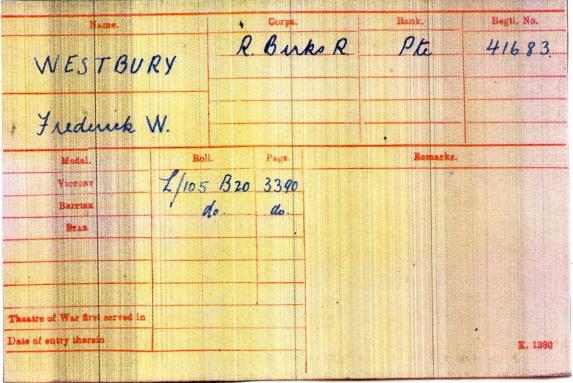 Name. Corps. Rank. Regtl. No.
WESTBURY R. Berks R Pte 41683
Frederick W.
Medal. Roll. Page. Remarks.
VICTORY L/105 B20 3390
BRITISH do. do.
STAR
Theatre of War first served in
Date of entry therein
K. 1380